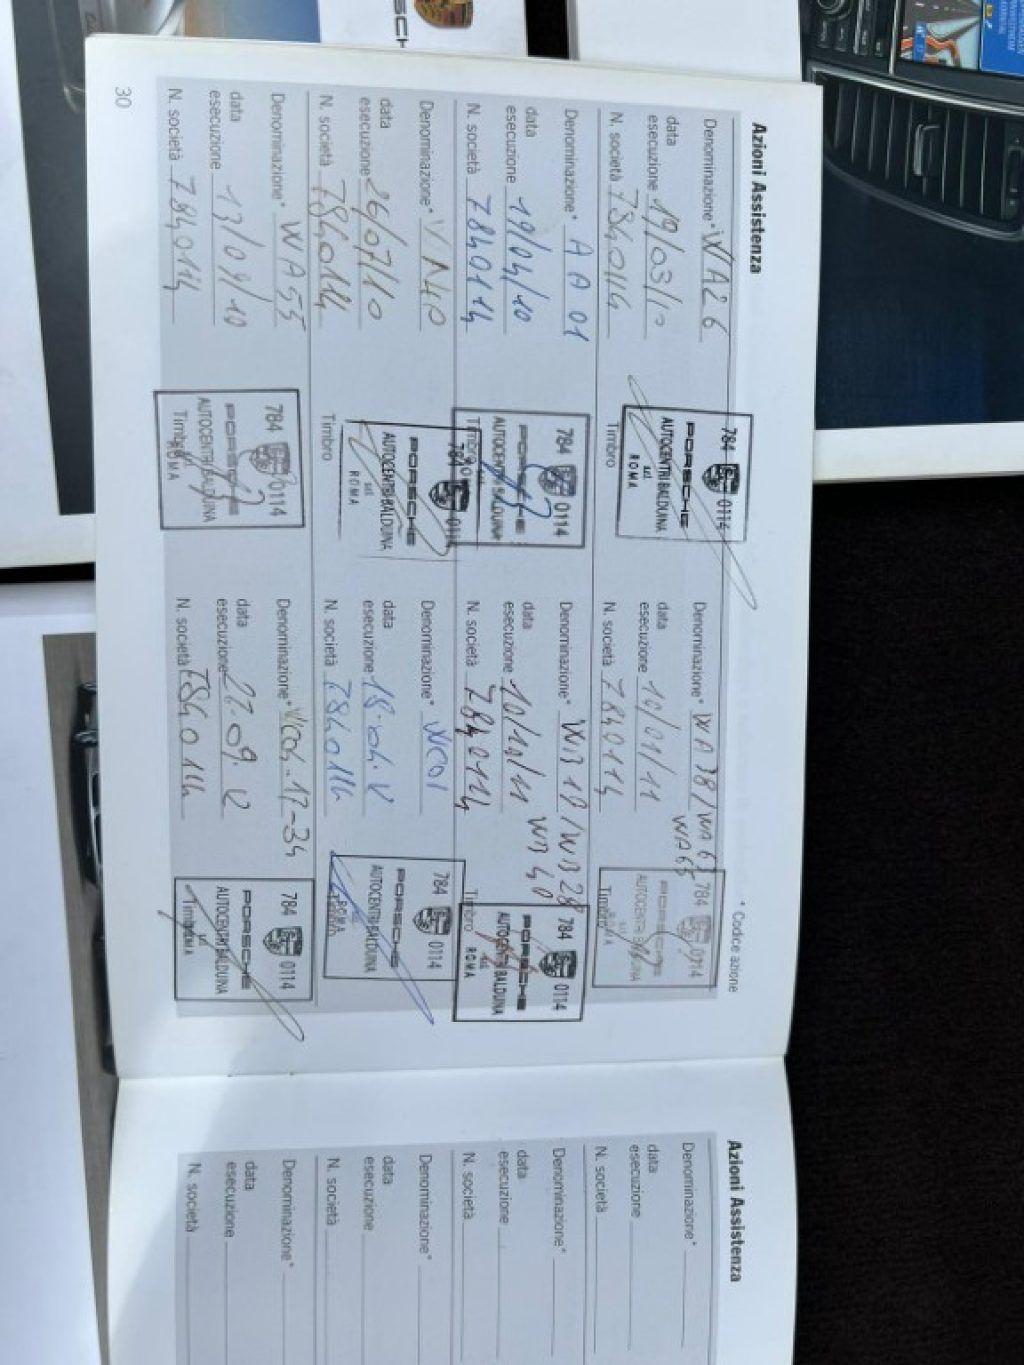 Azioni Assistenza
* Codice azione
Denominazione* WA26
data
esecuzione 19/03/10
N. società 7840114
784 0114
PORSCHE
AUTOCENTRI BALDUINA
s.r.l.
ROMA
Timbro
Denominazione* AA01
data
esecuzione 19/04/10
N. società 7840114
784 0114
PORSCHE
AUTOCENTRI BALDUINA
Timbro
Denominazione* VN40
data
esecuzione 26/07/10
N. società 7840114
784 0114
PORSCHE
AUTOCENTRI BALDUINA
s.r.l.
ROMA
Timbro
Denominazione* WA55
data
esecuzione 13/09/10
N. società 7840114
784 0114
PORSCHE
AUTOCENTRI BALDUINA
Timbro
ROMA
30
Denominazione* WA38/WA63
WA65
data
esecuzione 10/01/11
N. società 7840114
784 0114
PORSCHE
AUTOCENTRI BALDUINA
Timbro
Denominazione* WB19/WB28
WB40
data
esecuzione 10/10/11
N. società 7840114
784 0114
PORSCHE
AUTOCENTRI BALDUINA
s.r.l.
ROMA
Timbro
Denominazione* WC01
data
esecuzione 18.04.12
N. società 7840114
784 0114
PORSCHE
AUTOCENTRI BALDUINA
ROMA
Timbro
Denominazione*
data
esecuzione 27.09.12
N. società 7840114
784 0114
PORSCHE
AUTOCENTRI BALDUINA
Timbro
Azioni Assistenza
Denominazione*
data
esecuzione
N. società
Denominazione*
data
esecuzione
N. società
Denominazione*
data
esecuzione
N. società
Denominazione*
data
esecuzione
N. società